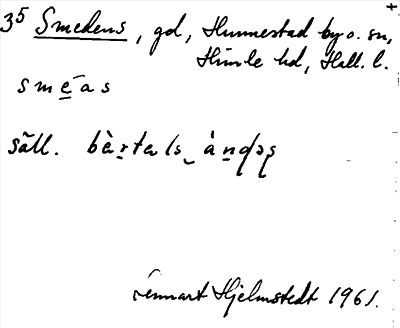 35 Smedens, gd, Hunnestad by o. sn,
Himle hd, Hall. l.
smèas
säll. bàrtals ànd
Lennart Hjelmstedt 1961.